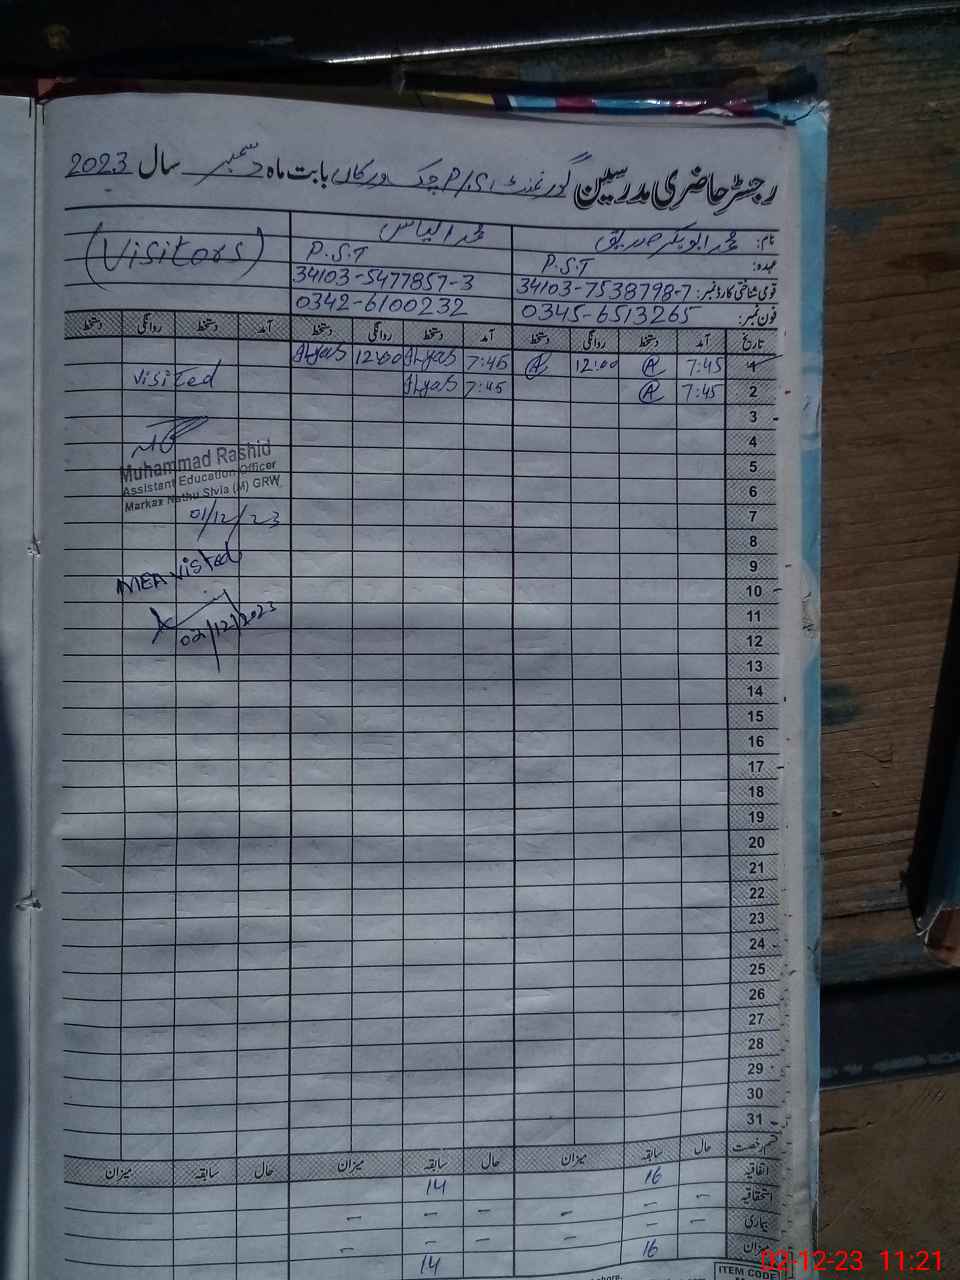 رجسٹر حاضری مدرسین گورنمنٹ P/S چک ورکاں بابت ماہ دسمبر سال 2023
نام: محمد ابوبکر صدیق محمد الیاس (Visitors)
عہدہ: P.S.T P.S.T
قومی شناختی کارڈ نمبر: 34103-7538798-7 34103-5477857-3
فون نمبر: 0345-6513265 0342-6100232
تاریخ آمد دستخط روانگی دستخط آمد دستخط روانگی دستخط آمد دستخط روانگی دستخط
1 7:45 12:00 7:45 Ilyas 12:00 Ilyas
2 7:45 7:45 Ilyas visited
3
4
5
6
7
8
9
10
11
12
13
14
15
16
17
18
19
20
21
22
23
24
25
26
27
28
29
30
31
Muhammad Rashid
Assistant Education Officer
Markaz Nathu Sivia (M) GRW
01/12/23
MEA visited
02/12/2023
قسم رخصت حال سابقہ میزان حال سابقہ میزان حال سابقہ میزان
اتفاقیہ 16 14
استحقاقیہ
بیماری
میزان 16 14
ITEM CODE
02-12-23 11:21